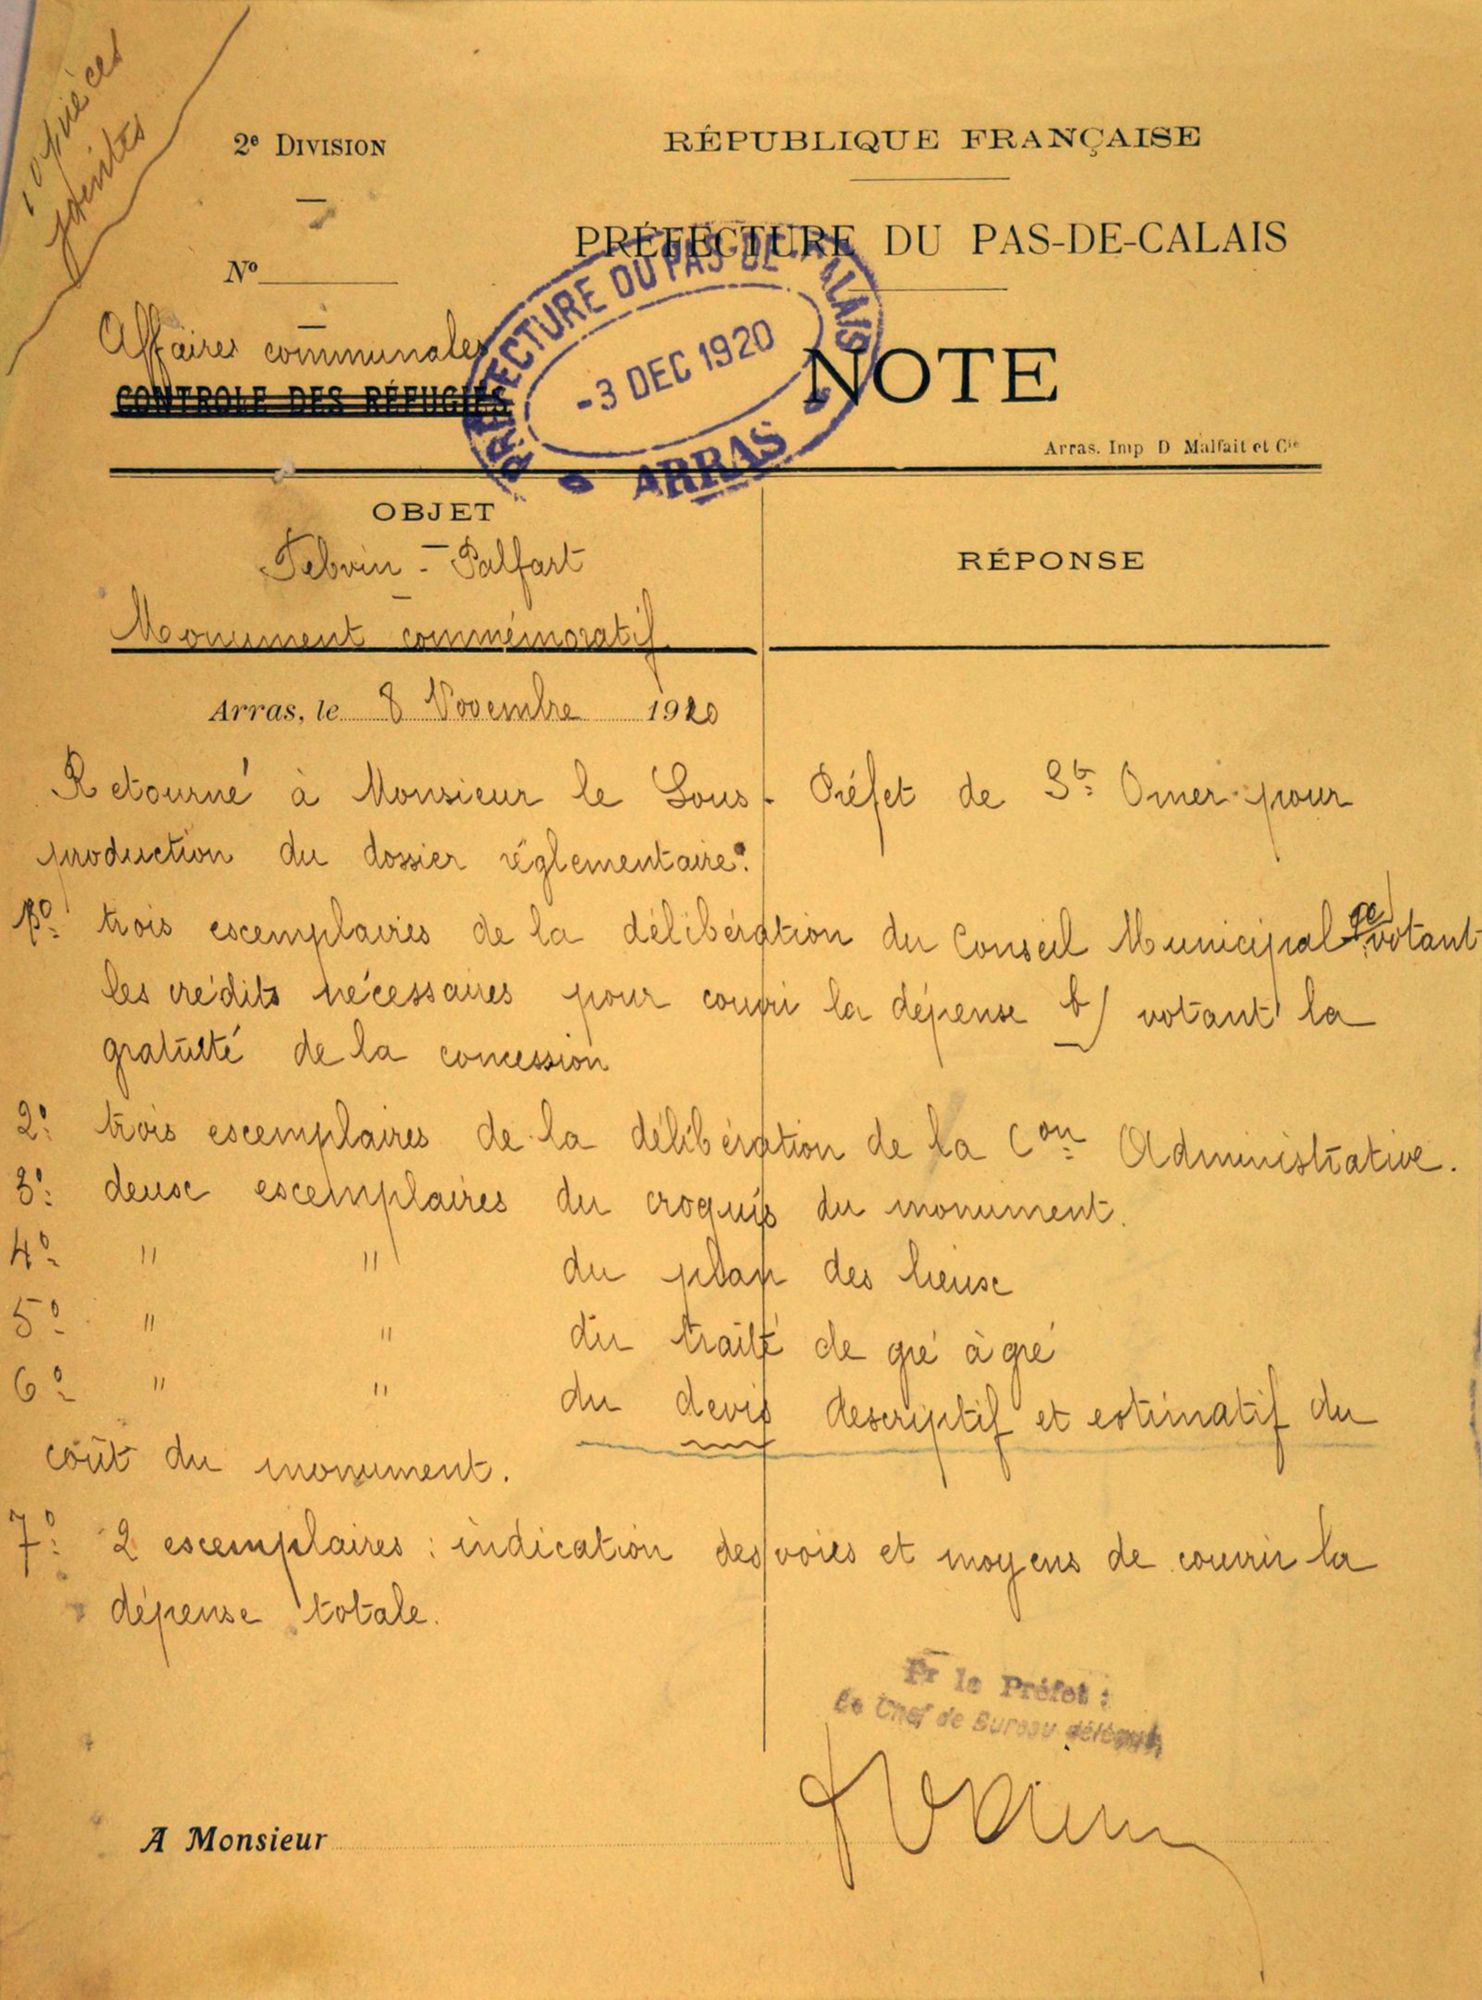 10 pièces
jointes
2e DIVISION
RÉPUBLIQUE FRANÇAISE
PRÉFECTURE DU PAS-DE-CALAIS
No
Affaires communales
CONTROLE DES RÉFUGIÉS
PRÉFECTURE DU PAS-DE-CALAIS
-3 DEC 1920
ARRAS
NOTE
Arras. Imp D Malfait et Cie
OBJET
Febvin-Palfart
Monument commémoratif
RÉPONSE
Arras, le 8 Novembre 1920
Retourné à Monsieur le Sous-Préfet de St Omer pour
production du dossier réglementaire:
1o trois exemplaires de la délibération du Conseil Municipal votant
les crédits nécessaires pour couvri la dépense b/ votant la
gratuité de la concession
2o trois exemplaires de la délibération de la Con Administrative.
3o deux exemplaires du croquis du monument.
4o " " du plan des lieux
5o " " du traité de gré à gré
6o " " du devis descriptif et estimatif du
coût du monument.
7o 2 exemplaires : indication des voies et moyens de couvrir la
dépense totale.
Pr le Préfet :
Le Chef de Bureau délégué,
A Monsieur